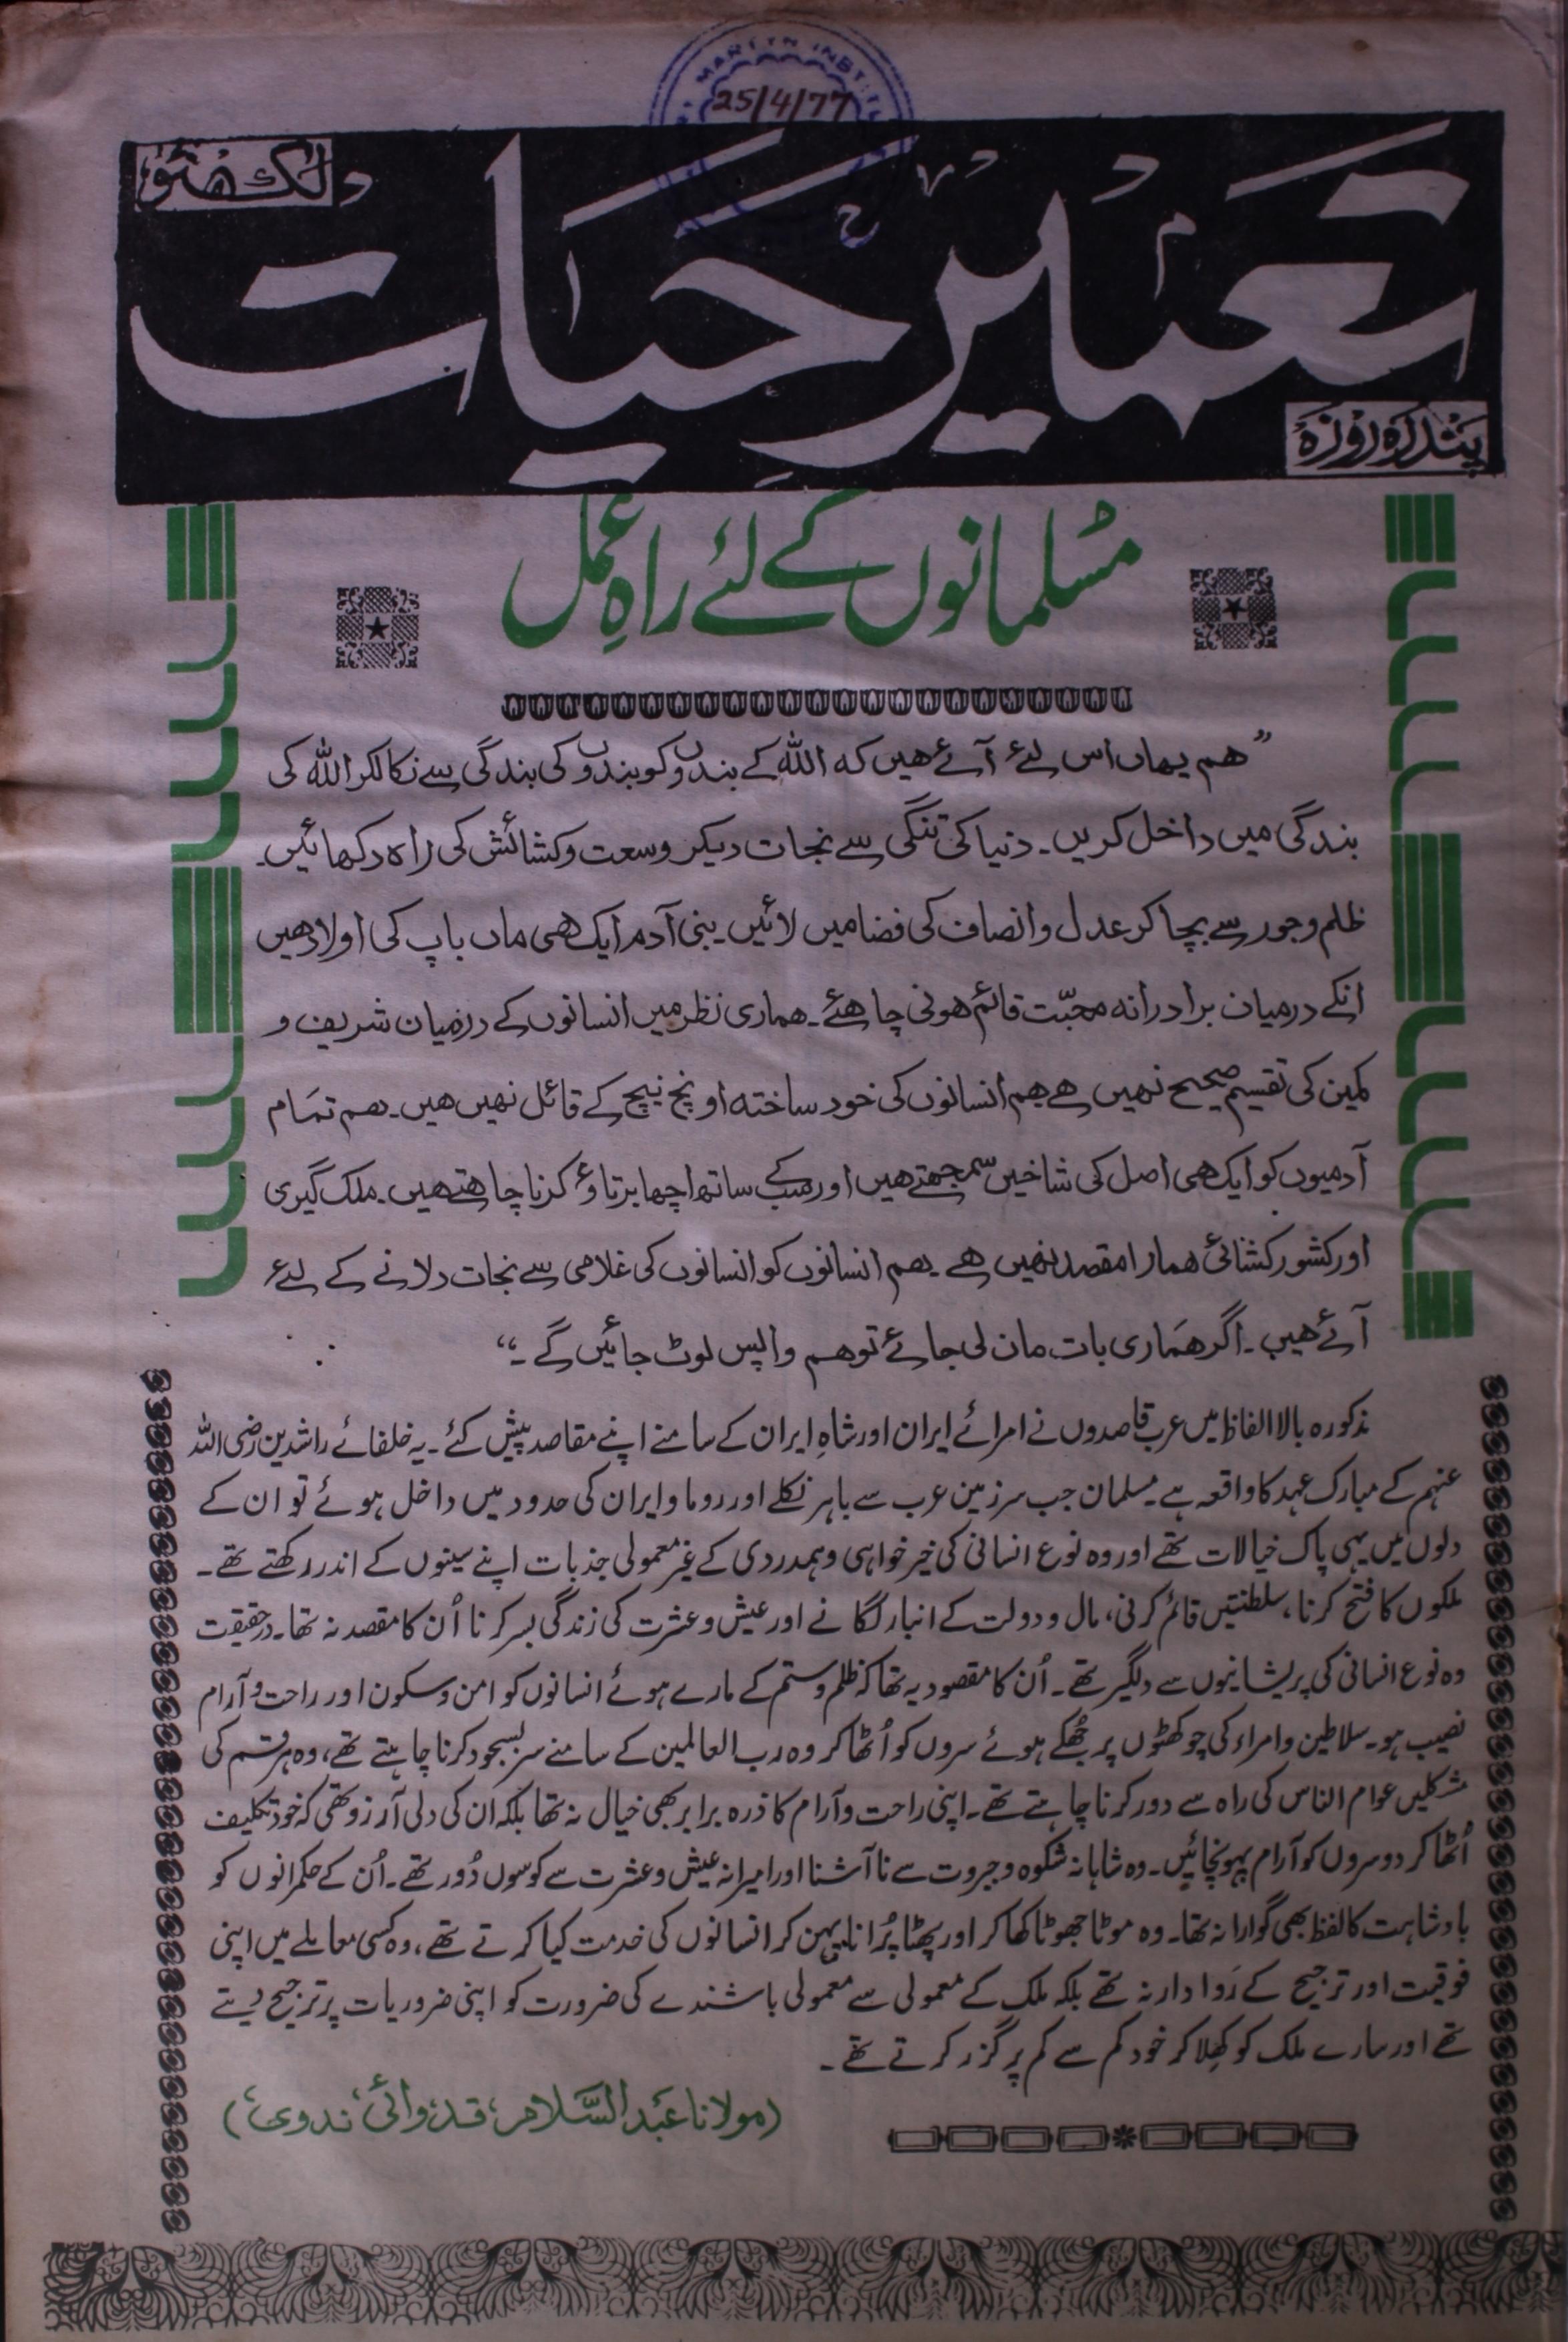 MARTYN INSTITU
25/4/77
لکھنؤ
تعمیر حیات
پندرہ روزہ
مسلمانوں کے لئے راہِ عمل
”ہم یہاں اس لئے آئے ہیں کہ اللہ کے بندوں کو بندوں کی بندگی سے نکالکر اللہ کی
بندگی میں داخل کریں۔ دنیا کی تنگی سے نجات دیکر وسعت وکشائش کی راہ دکھائیں۔
ظلم وجور سے بچا کر عدل وانصاف کی فضا میں لائیں۔ بنی آدم ایک ہی ماں باپ کی اولاد ہیں
انکے درمیان برادرانہ محبّت قائم ہونی چاہئے۔ ہماری نظر میں انسانوں کے درمیان شریف و
کمین کی تقسیم صحیح نہیں ہے ہم انسانوں کی خود ساختہ اونچ نیچ کے قائل نہیں ہیں۔ ہم تمام
آدمیوں کو ایک ہی اصل کی شاخیں سمجھتے ہیں اور سب کے ساتھ اچھا برتاؤ کرنا چاہتے ہیں۔ ملک گیری
اور کشور کشائی ہمارا مقصد نہیں ہے۔ ہم انسانوں کو انسانوں کی غلامی سے نجات دلانے کے لئے
آئے ہیں۔ اگر ہماری بات مان لی جائے تو ہم واپس لوٹ جائیں گے۔“
مذکورہ بالا الفاظ میں عرب قاصدوں نے امرائے ایران اور شاہِ ایران کے سامنے اپنے مقاصد پیش کئے۔ یہ خلفائے راشدین رضی اللہ
عنہم کے مبارک عہد کا واقعہ ہے۔ مسلمان جب سرزمین عرب سے باہر نکلے اور روما و ایران کی حدود میں داخل ہوئے تو ان کے
دلوں میں یہی پاک خیالات تھے اور وہ نوع انسانی کی خیرخواہی وہمدردی کے غیرمعمولی جذبات اپنے سینوں کے اندر رکھتے تھے۔
ملکوں کا فتح کرنا، سلطنتیں قائم کرنی، مال و دولت کے انبار لگانے اور عیش وعشرت کی زندگی بسر کرنا اُن کا مقصد نہ تھا۔ درحقیقت
وہ نوع انسانی کی پریشانیوں سے دلگیر تھے۔ اُن کا مقصود یہ تھا کہ ظلم وستم کے مارے ہوئے انسانوں کو امن وسکون اور راحت وآرام
نصیب ہو۔ سلاطین و امراء کی چوکھٹوں پر جُھکے ہوئے سروں کو اُٹھا کر وہ رب العالمین کے سامنے سربسجود کرنا چاہتے تھے، وہ ہر قسم کی
مشکلیں عوام الناس کی راہ سے دور کرنا چاہتے تھے۔ اپنی راحت وآرام کا ذرہ برابر بھی خیال نہ تھا بلکہ ان کی دلی آرزو تھی کہ خود تکلیف
اُٹھا کر دوسروں کو آرام پہونچائیں۔ وہ شاہانہ شکوہ وجبروت سے ناآشنا اور امیرانہ عیش وعشرت سے کوسوں دُور تھے۔ اُن کے حکمرانوں کو
بادشاہت کا لفظ بھی گوارا نہ تھا۔ وہ موٹا جھوٹا کھا کر اور پھٹا پُرانا پہن کر انسانوں کی خدمت کیا کرتے تھے، وہ کسی معاملے میں اپنی
فوقیت اور ترجیح کے رَوادار نہ تھے بلکہ ملک کے معمولی سے معمولی باشندے کی ضرورت کو اپنی ضروریات پر ترجیح دیتے
تھے اور سارے ملک کو کھِلا کر خود کم سے کم پر گزر کرتے تھے۔
(مولانا عبدالسَّلام، قدوائی، ندوی،)